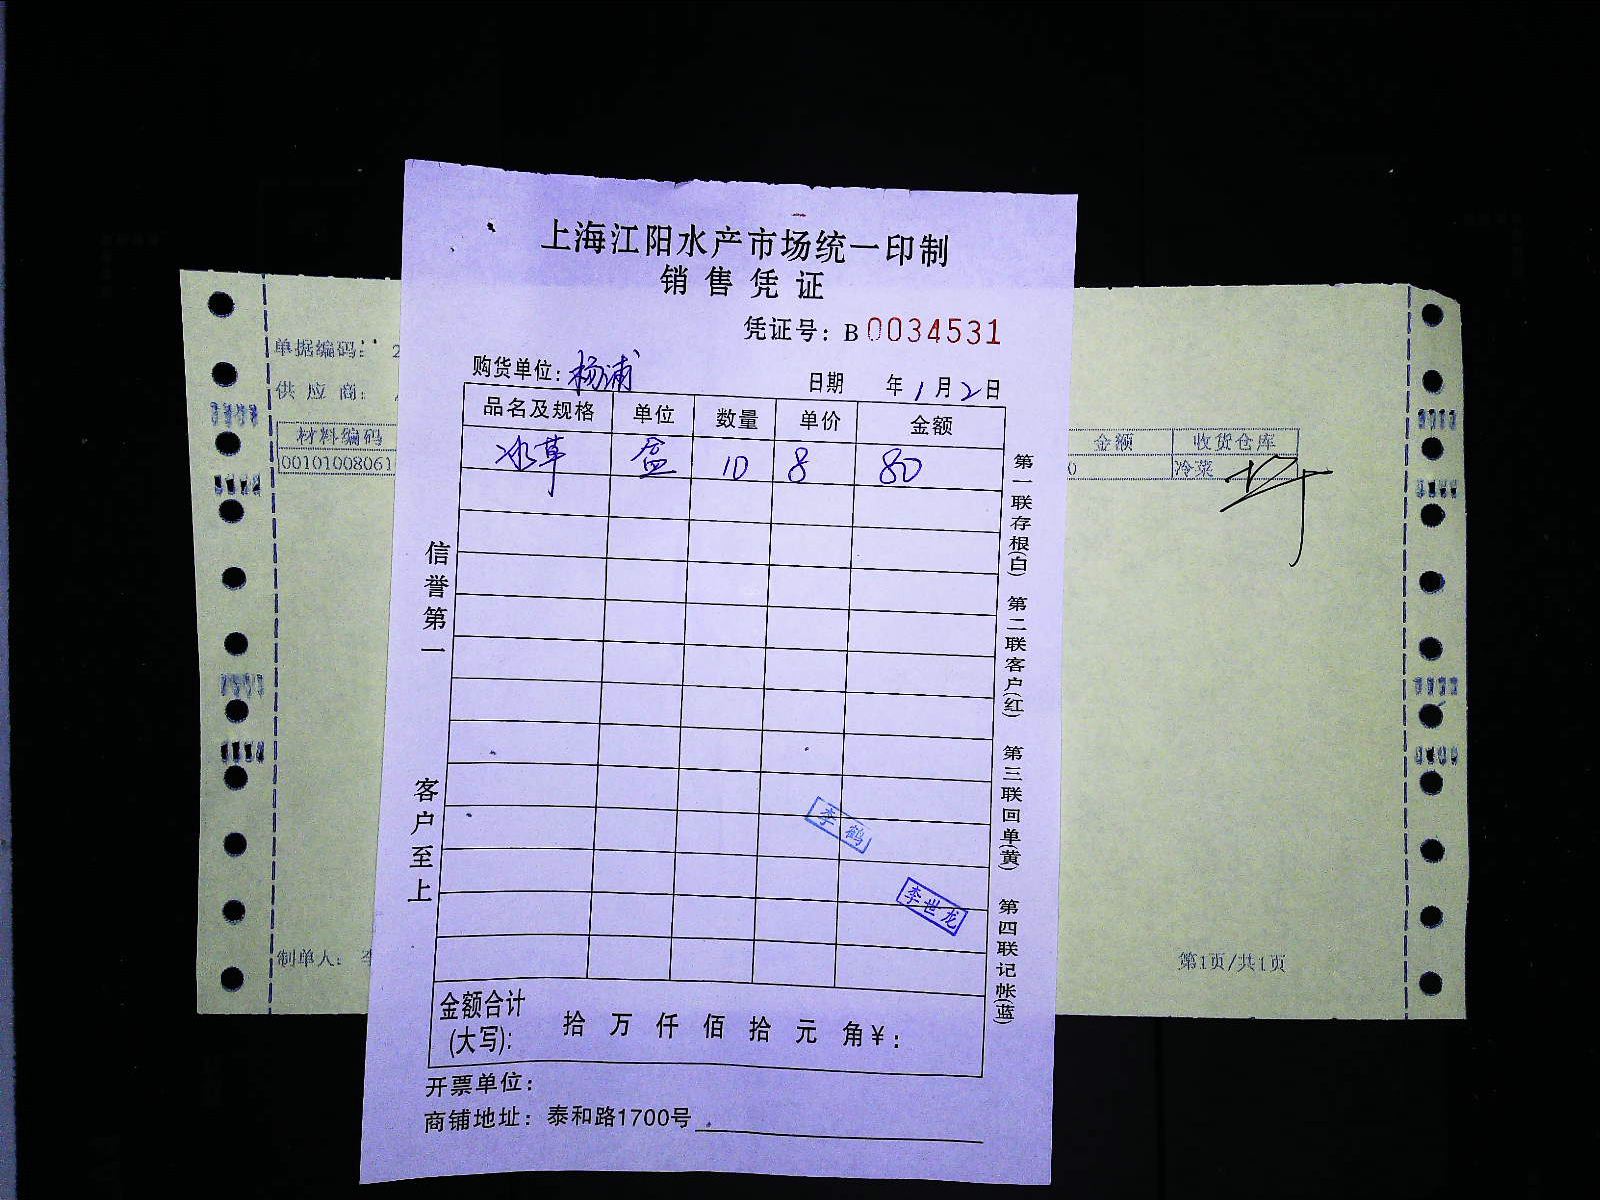 上海江阳水产市场统一印制
销售凭证
凭证号：B0034531
购货单位：杨浦 日期 年1月2日
品名及规格 单位 数量 单价 金额
冰草 盒 10 8 80
信誉第一
客户至上
第一联存根(白) 第二联客户(红) 第三联回单(黄) 第四联记帐(蓝)
李鹤
李世龙
金额合计
(大写): 拾 万 仟 佰 拾 元 角¥:
开票单位：
商铺地址：泰和路1700号
单据编码： 2
供应商：
材料编码
0010100806
金额 收货仓库
0 冷菜
制单人： 李
第1页/共1页